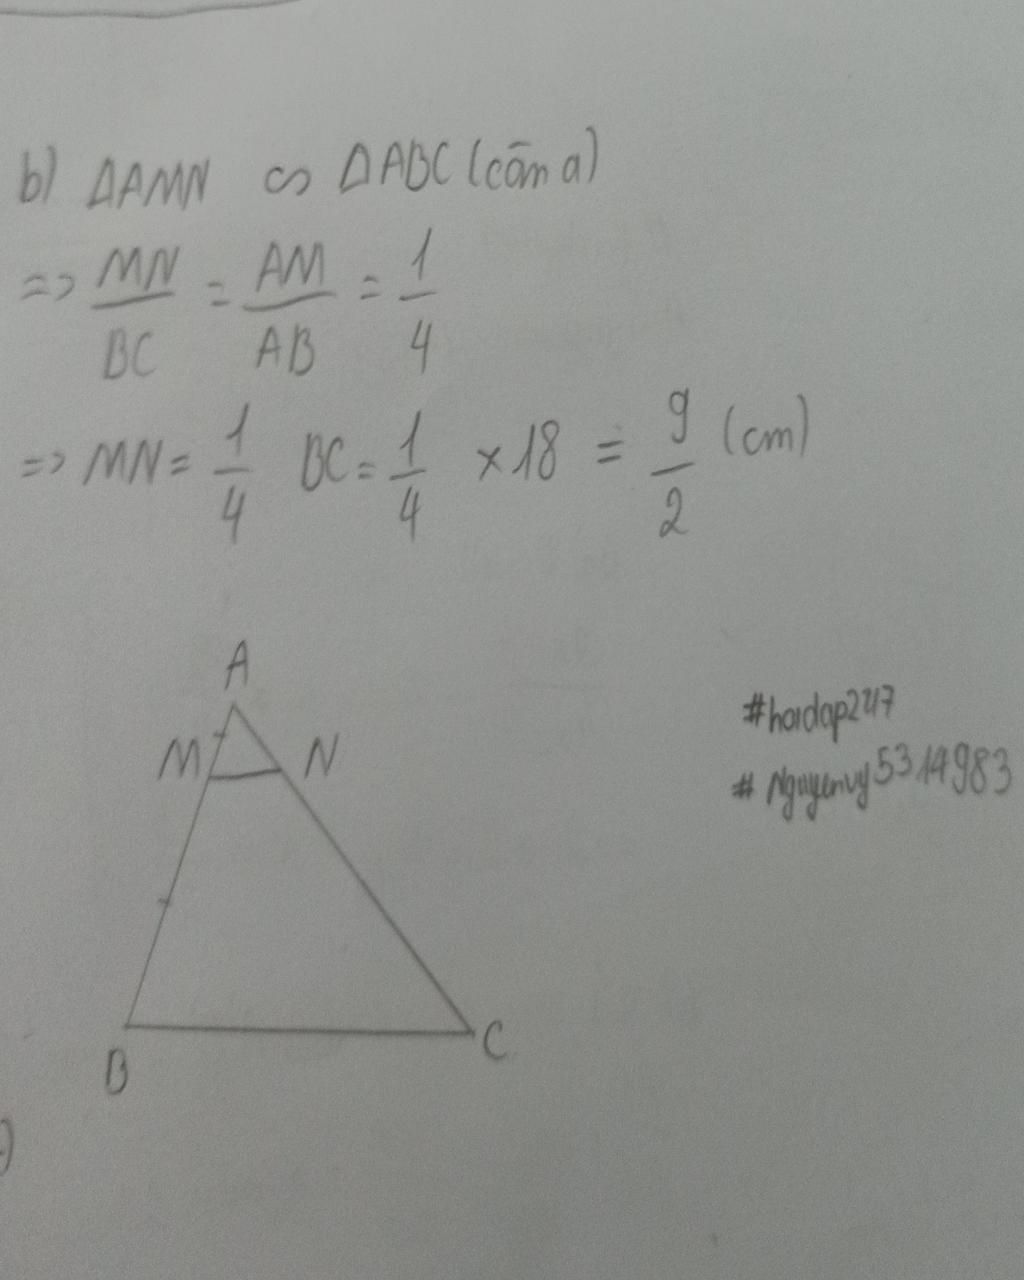 b) ΔAMN ∽ ΔABC (câm a)
=> MN/BC = AM/AB = 1/4
=> MN = 1/4 BC = 1/4 × 18 = 9/2 (cm)
A
M N
B C
#hoidap247
# Nguyenvy5314983